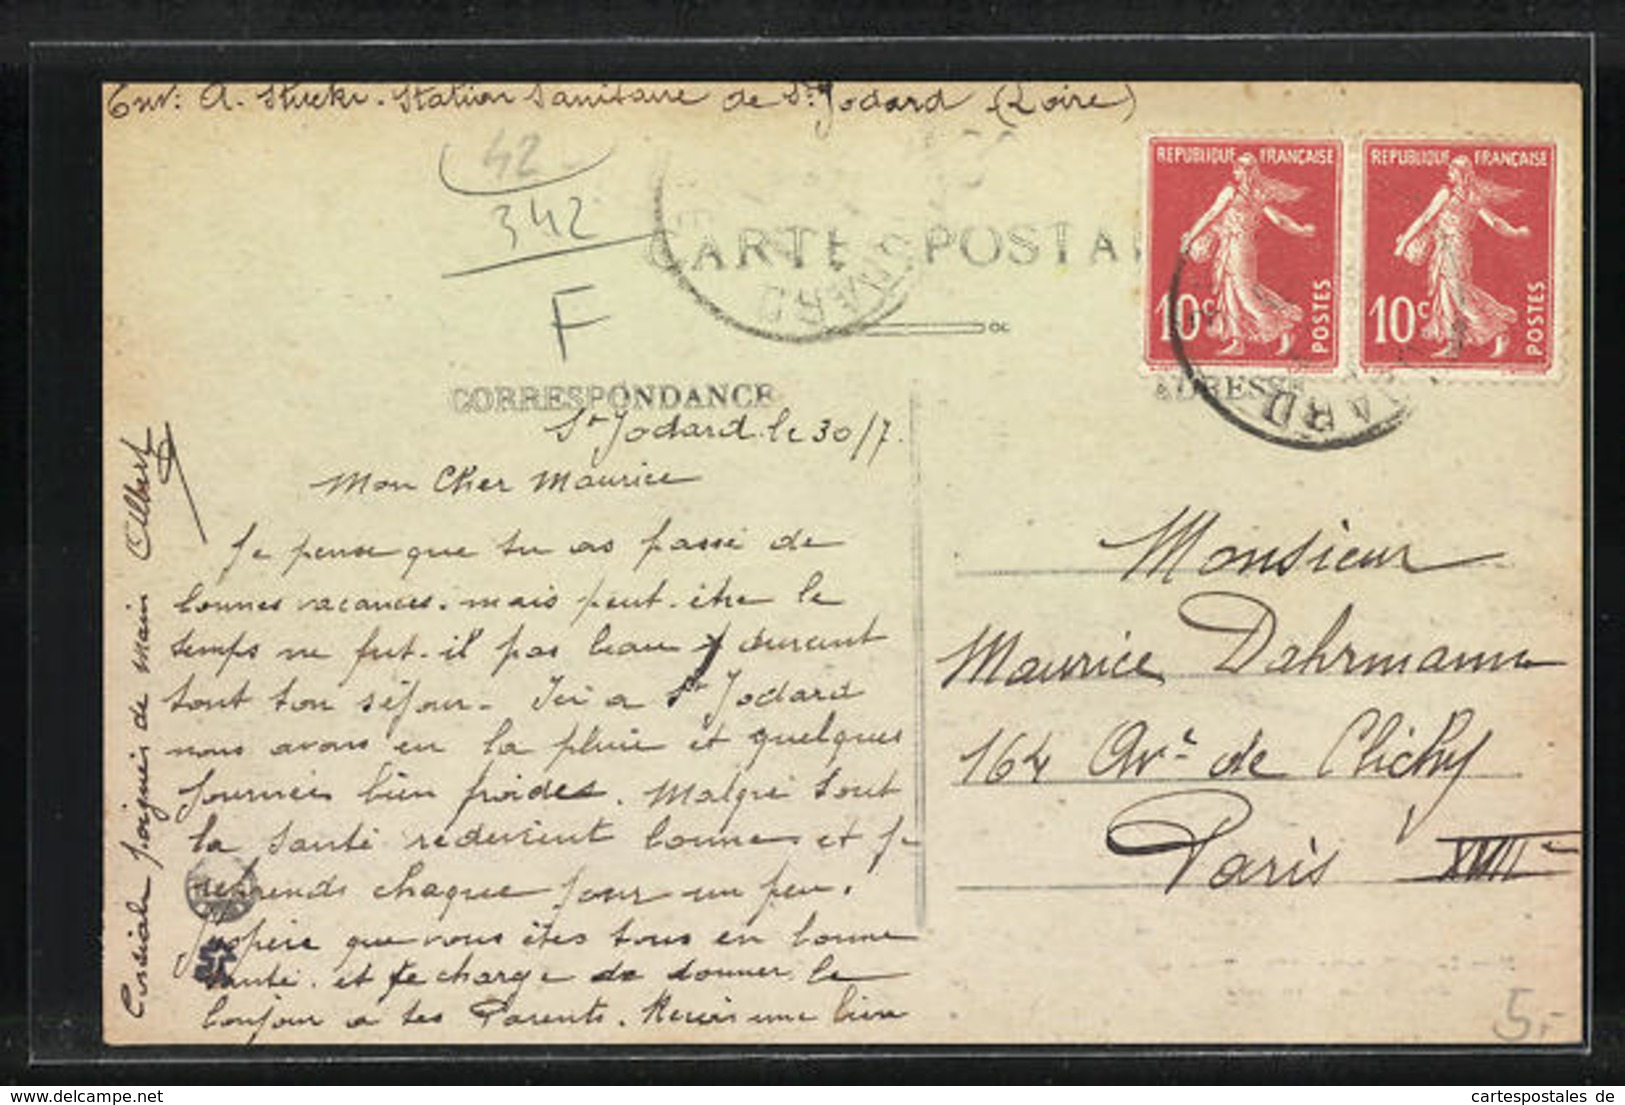 Env: A. Stucki. Station Sanitaire de St Jodard (Loire)
42
342
F
CARTE POSTA
REPUBLIQUE FRANÇAISE
10c
POSTES
REPUBLIQUE FRANÇAISE
10c
POSTES
CORRESPONDANCE
ADRESSE
St Jodard le 30/7.
Mon Cher Maurice
Je pense que tu as passé de
bonnes vacances. mais peut-être le
temps ne fut-il pas beau durant
tout ton séjour. Ici a St Jodard
nous avons eu la pluie et quelques
journées bien froides. Malgré tout
la santé redevient bonne et je
reprends chaque jour un peu.
J'espère que vous êtes tous en bonne
santé. et je charge de donner le
bonjour a tes Parents. Reçois une bien
Cordiale poignée de main Albert
Monsieur
Maurice Dahrmann
164 Ave de Clichy
Paris XVIIe
5.-
www.cartespostales.de
cartespostales de